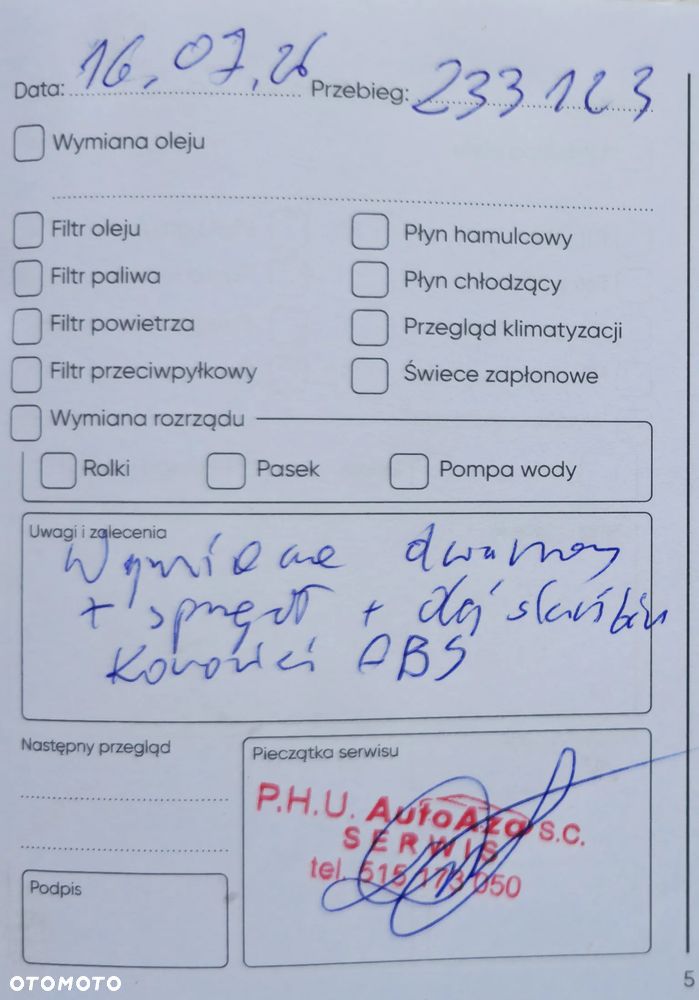 Data: 16.07.26 Przebieg: 233 123
Wymiana oleju
Filtr oleju
Płyn hamulcowy
Filtr paliwa
Płyn chłodzący
Filtr powietrza
Przegląd klimatyzacji
Filtr przeciwpyłkowy
Świece zapłonowe
Wymiana rozrządu
Rolki Pasek Pompa wody
Uwagi i zalecenia
+ +
ABS
Następny przegląd
Pieczątka serwisu
P.H.U. AutoAza S.C.
SERWIS
tel. 515 173 050
Podpis
OTOMOTO
5